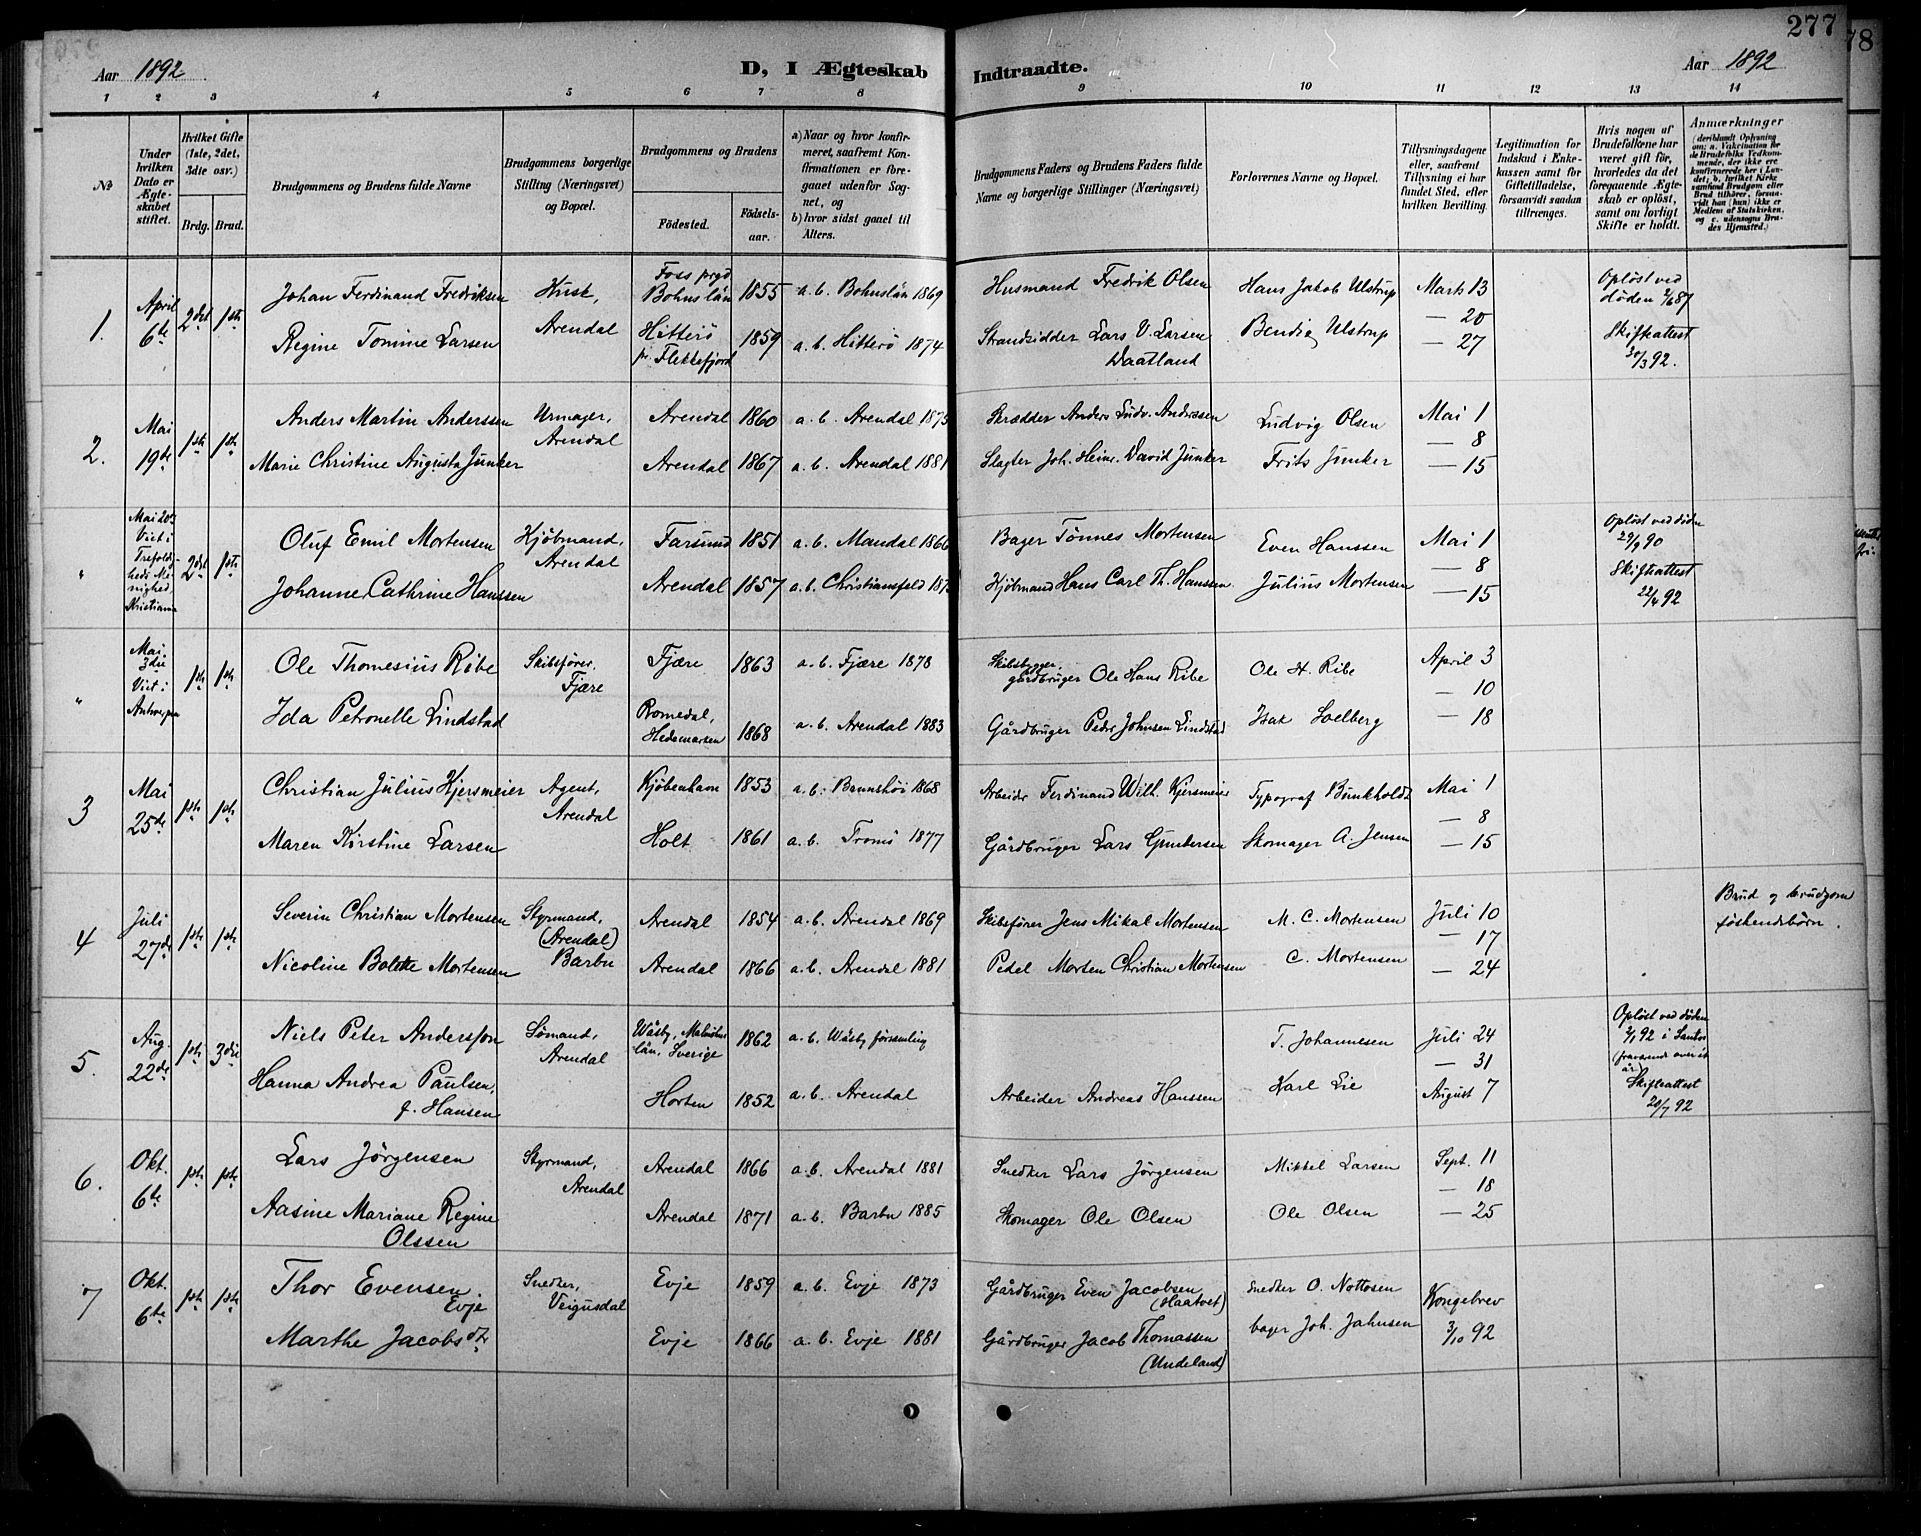 277
78
Aar 1892
D, I Ægteskab
Indtraadte.
Aar 1892
1 2 3 4 5 6 7 8 9 10 11 12 13 14
No
Under hvilken Dato er Ægteskabet stiftet.
Hvilket Gifte (1ste, 2det, 3die osv.)
Brdg. Brud.
Brudgommens og Brudens fulde Navne
Brudgommens borgerlige Stilling (Næringsvei) og Bopæl.
Brudgommens og Brudens
Fødested.
Fødselsaar.
a) Naar og hvor konfirmeret, saafremt Konfirmationen er foregaaet udenfor Sognet, og
b) hvor sidst gaaet til Alters.
Brudgommens Faders og Brudens Faders fulde Navne og borgerlige Stillinger (Næringsvei)
Forlovernes Navne og Bopæl.
Tillysningsdagene eller, saafremt Tillysning ei har fundet Sted, efter hvilken Bevilling.
Legitimation for Indskud i Enkekassen samt for Giftetilladelse, forsaavidt saadan tiltrænges.
Hvis nogen af Brudefolkene har været gift før, hvorledes da det foregaaende Ægteskab er opløst, samt om lovligt Skifte er holdt.
Anmærkninger
(deriblandt Oplysning om: a. Vakcination for de Brudefolks Vedkommende, der ikke ere konfirmerede her i Landet; b. hvilket Kirkesamfund Brudgom eller Brud tilhører, forsaavidt han (hun) ikke er Medlem af Statskirken, og c. udensogns Brudes Hjemsted.)
1. April 6te 2det 1ste
Johan Ferdinand Fredriksen
Husk, Arendal
Foss prgd Bohuslän 1855 a. b. Bohuslän 1869
Husmand Fredrik Olsen
Hans Jakob Ulstrup
Marts 13
— 20
— 27
Opløst ved døden 2/6 87
Skifteattest 30/3 92.
Regine Tomine Larsen
Hitterø pr. Flekkefjord 1859 a. b. Hitterö 1874
Strandsidder Lars V. Larsen Daatland
Bendix Ulstrup
2. Mai 19de 1ste 1ste
Anders Martin Anderssen
Urmager, Arendal
Arendal 1860 a. b. Arendal 1875
Skrædder Anders Ludv. Andresen
Ludvig Olsen
Mai 1
— 8
— 15
Marie Christine Augusta Junker
Arendal 1867 a. b. Arendal 1881
Slagter Joh. Heinr. David Junker
Frits Junker
" Mai 20de Viet i Trefoldigheds Menighed, Kristiania 2det 1ste
Oluf Emil Mortensen
Kjøbmand, Arendal
Farsund 1851 a. b. Mandal 1866
Bager Tønnes Mortensen
Even Hanssen
Mai 1
— 8
— 15
Opløst ved døden 29/9 90
Skifteattest 22/4 92
Johanne Cathrine Hanssen
Arendal 1857 a. b. Christiansfeld
Kjøbmand Hans Carl Th. Hanssen.
Julius Mortensen
" Mai 3die Viet i Antwerpen 1ste 1ste
Ole Thomesius Ribe
Skibsfører, Fjære
Fjære 1863 a. b. Fjære 1878
Skibsbygger, gårdbruger Ole Hans Ribe
Ole H. Ribe
April 3
— 10
— 18
Ida Petronelle Lindstad
Romedal, Hedemarken 1868 a. b. Arendal 1883
Gårdbruger Peder Johnsen Lindstad
Isak Solberg
3 Mai 25de 1ste 1ste
Christian Julius Kjersmeier
Agent, Arendal
Kjøbenhavn 1853 a. b. Brønshøi 1868
Arbeider Ferdinand Wilh. Kjersmeier
Typograf Bunkholdt
Mai 1
— 8
— 15
Maren Kirstine Larsen
Holt 1861 a. b. Tromö 1877
Gårdbruger Lars Gundersen
Skomager A. Jensen
4 Juli 27de 1ste 1ste
Severin Christian Mortensen
Styrmand, (Arendal) Barbu
Arendal 1854 a. b. Arendal 1869
Skibsfører Jens Mikal Mortensen
M. C. Mortensen
Juli 10
— 17
— 24
Brud og brudgom søskendebørn.
Nicoline Bolette Mortensen
Arendal 1866 a. b. Arendal 1881
Pedel Morten Christian Mortensen
C. Mortensen
5. Aug. 22de 1ste 3die
Niels Peter Andersson
Sømand, Arendal
Wäsby, Malmöhus län, Sverige 1862 a. b. Wäsby församling
T. Johannesen
Juli 24
— 31
August 7
Opløst ved døden 92 i Santos
(fravænde over et år)
Skifteattest 20/7 92
Hanna Andrea Paulsen, f. Hansen
Horten 1852 a. b. Arendal
Arbeider Andreas Hanssen
Karl Lie
6. Okt. 6te 1ste 1ste
Lars Jørgensen
Styrmand, Arendal
Arendal 1866 a. b. Arendal 1881
Snedker Lars Jørgensen
Mikkel Larsen
Sept. 11
— 18
— 25
Aasine Mariane Regine Olssen
Arendal 1871 a. b. Barbu 1885
Skomager Ole Olsen
Ole Olsen
7 Okt. 6te 1ste 1ste
Thor Evensen. Evje
Snedker, Veigusdal
Evje 1859 a. b. Evje 1873
Gårdbruger Even Jacobsen (Haatvet)
Snedker O. Nottosen
Kongebrev 3/10 92
Marthe Jacobsdtr
Evje 1866 a. b. Evje 1881
Gårdbruger Jacob Thomassen (Undeland)
bager Joh. Jahnsen